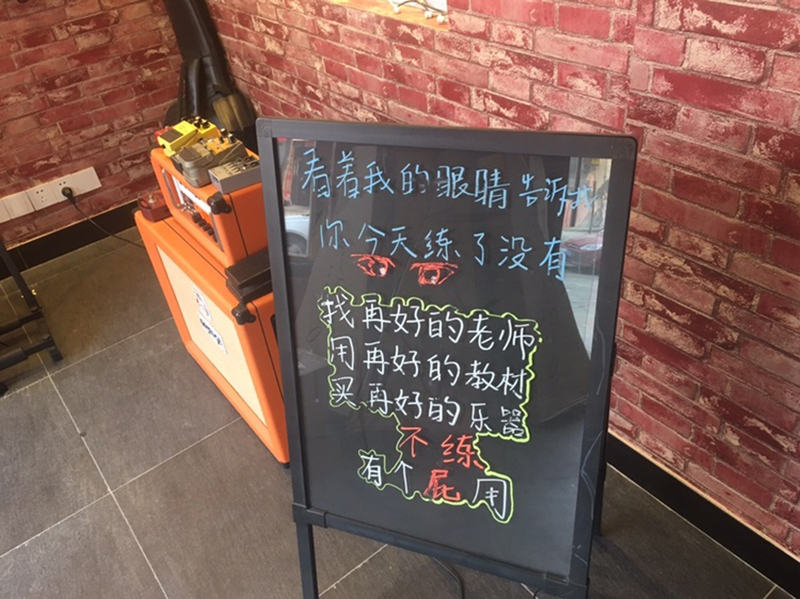 看着我的眼睛告诉我
你今天练了没有
找再好的老师
用再好的教材
买再好的乐器
不练
有个屁用